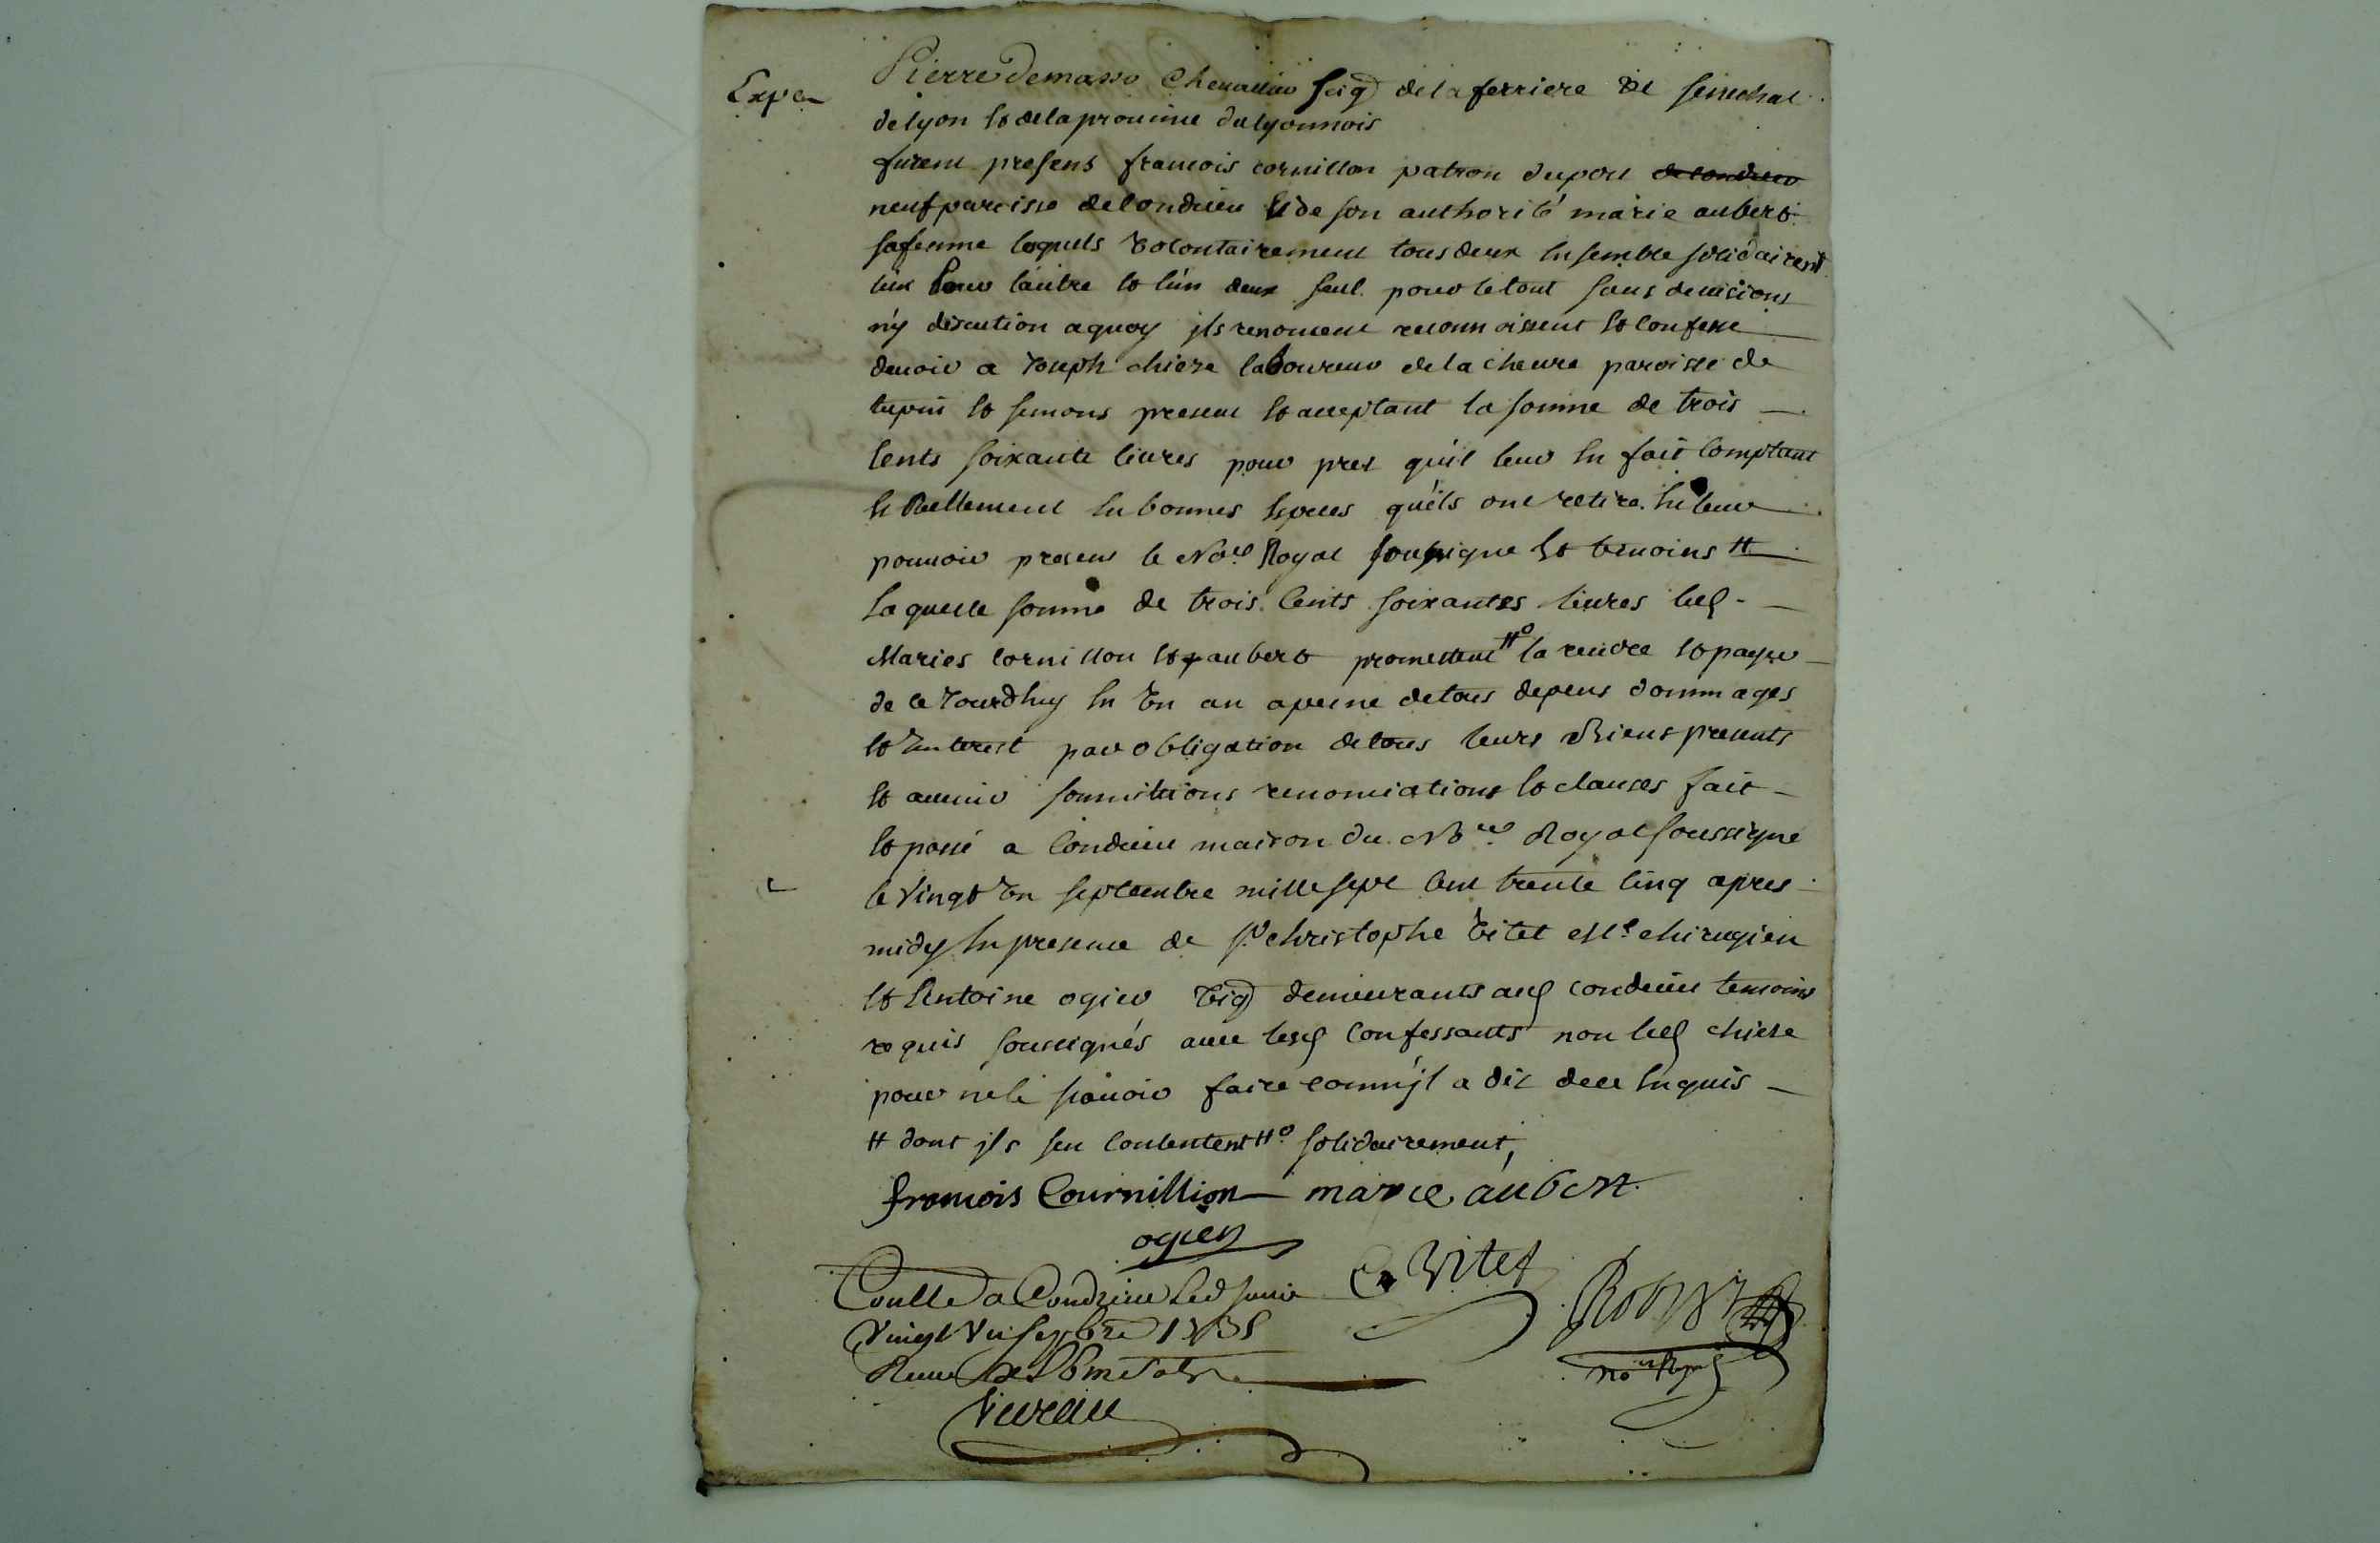 Exp en
Pierre Demasso Chevallier seig de la ferriere &c senechal
de lyon et de la province du lyonnois
furent presens francois cornillon patron du port de condrieu
neuf paroisse de condrieu et de son authorité marie aubert
sa femme lequels volontairement tous deux ensemble solidairent
lun pour lautre et lún deux seul pour le tout sans devisions
n'y discution a quoy jls renoncent reconnoissent et confesse
devoir a Joseph chieze laboureur de la cheure paroisse de
tupin et semons present et acceptant la somme de trois
cents soixante livres pour pret qu'il leur en fait comptant
et Reellement en bonnes especes qu'ils ont retire en leur
pouvoir present le Nore Royal soussigne et temoins #
laquelle somme de trois cents soixantes livres les
Maries cornillon et aubert promettent #o la rendre et payer
de ce Jourdhuy en un an a peine de tous depens dommages
et Interest par obligation de tous leurs Biens presents
et avenir soumissions renonciations et clauses fait
et passé a Condrieu maison du Nore Royal soussigné
le vingt un septembre mille sept cent trente cinq apres
midy en presence de sr christophe vitet Me chirugien
et Antoine ogier vig demeurants aud condrieu temoins
requis soussignés avec lesd confessants non led chieze
pour ne le sçavoir faire comm'jl a dit de ce enquis
# dont jls sen contentent #o solidairement,
francois Cournillion marie aúbert
ogier
C Vitet
Conllé a Condrieu led jour
vingt un sepbre 1735
Receu
Vireau
no Royal